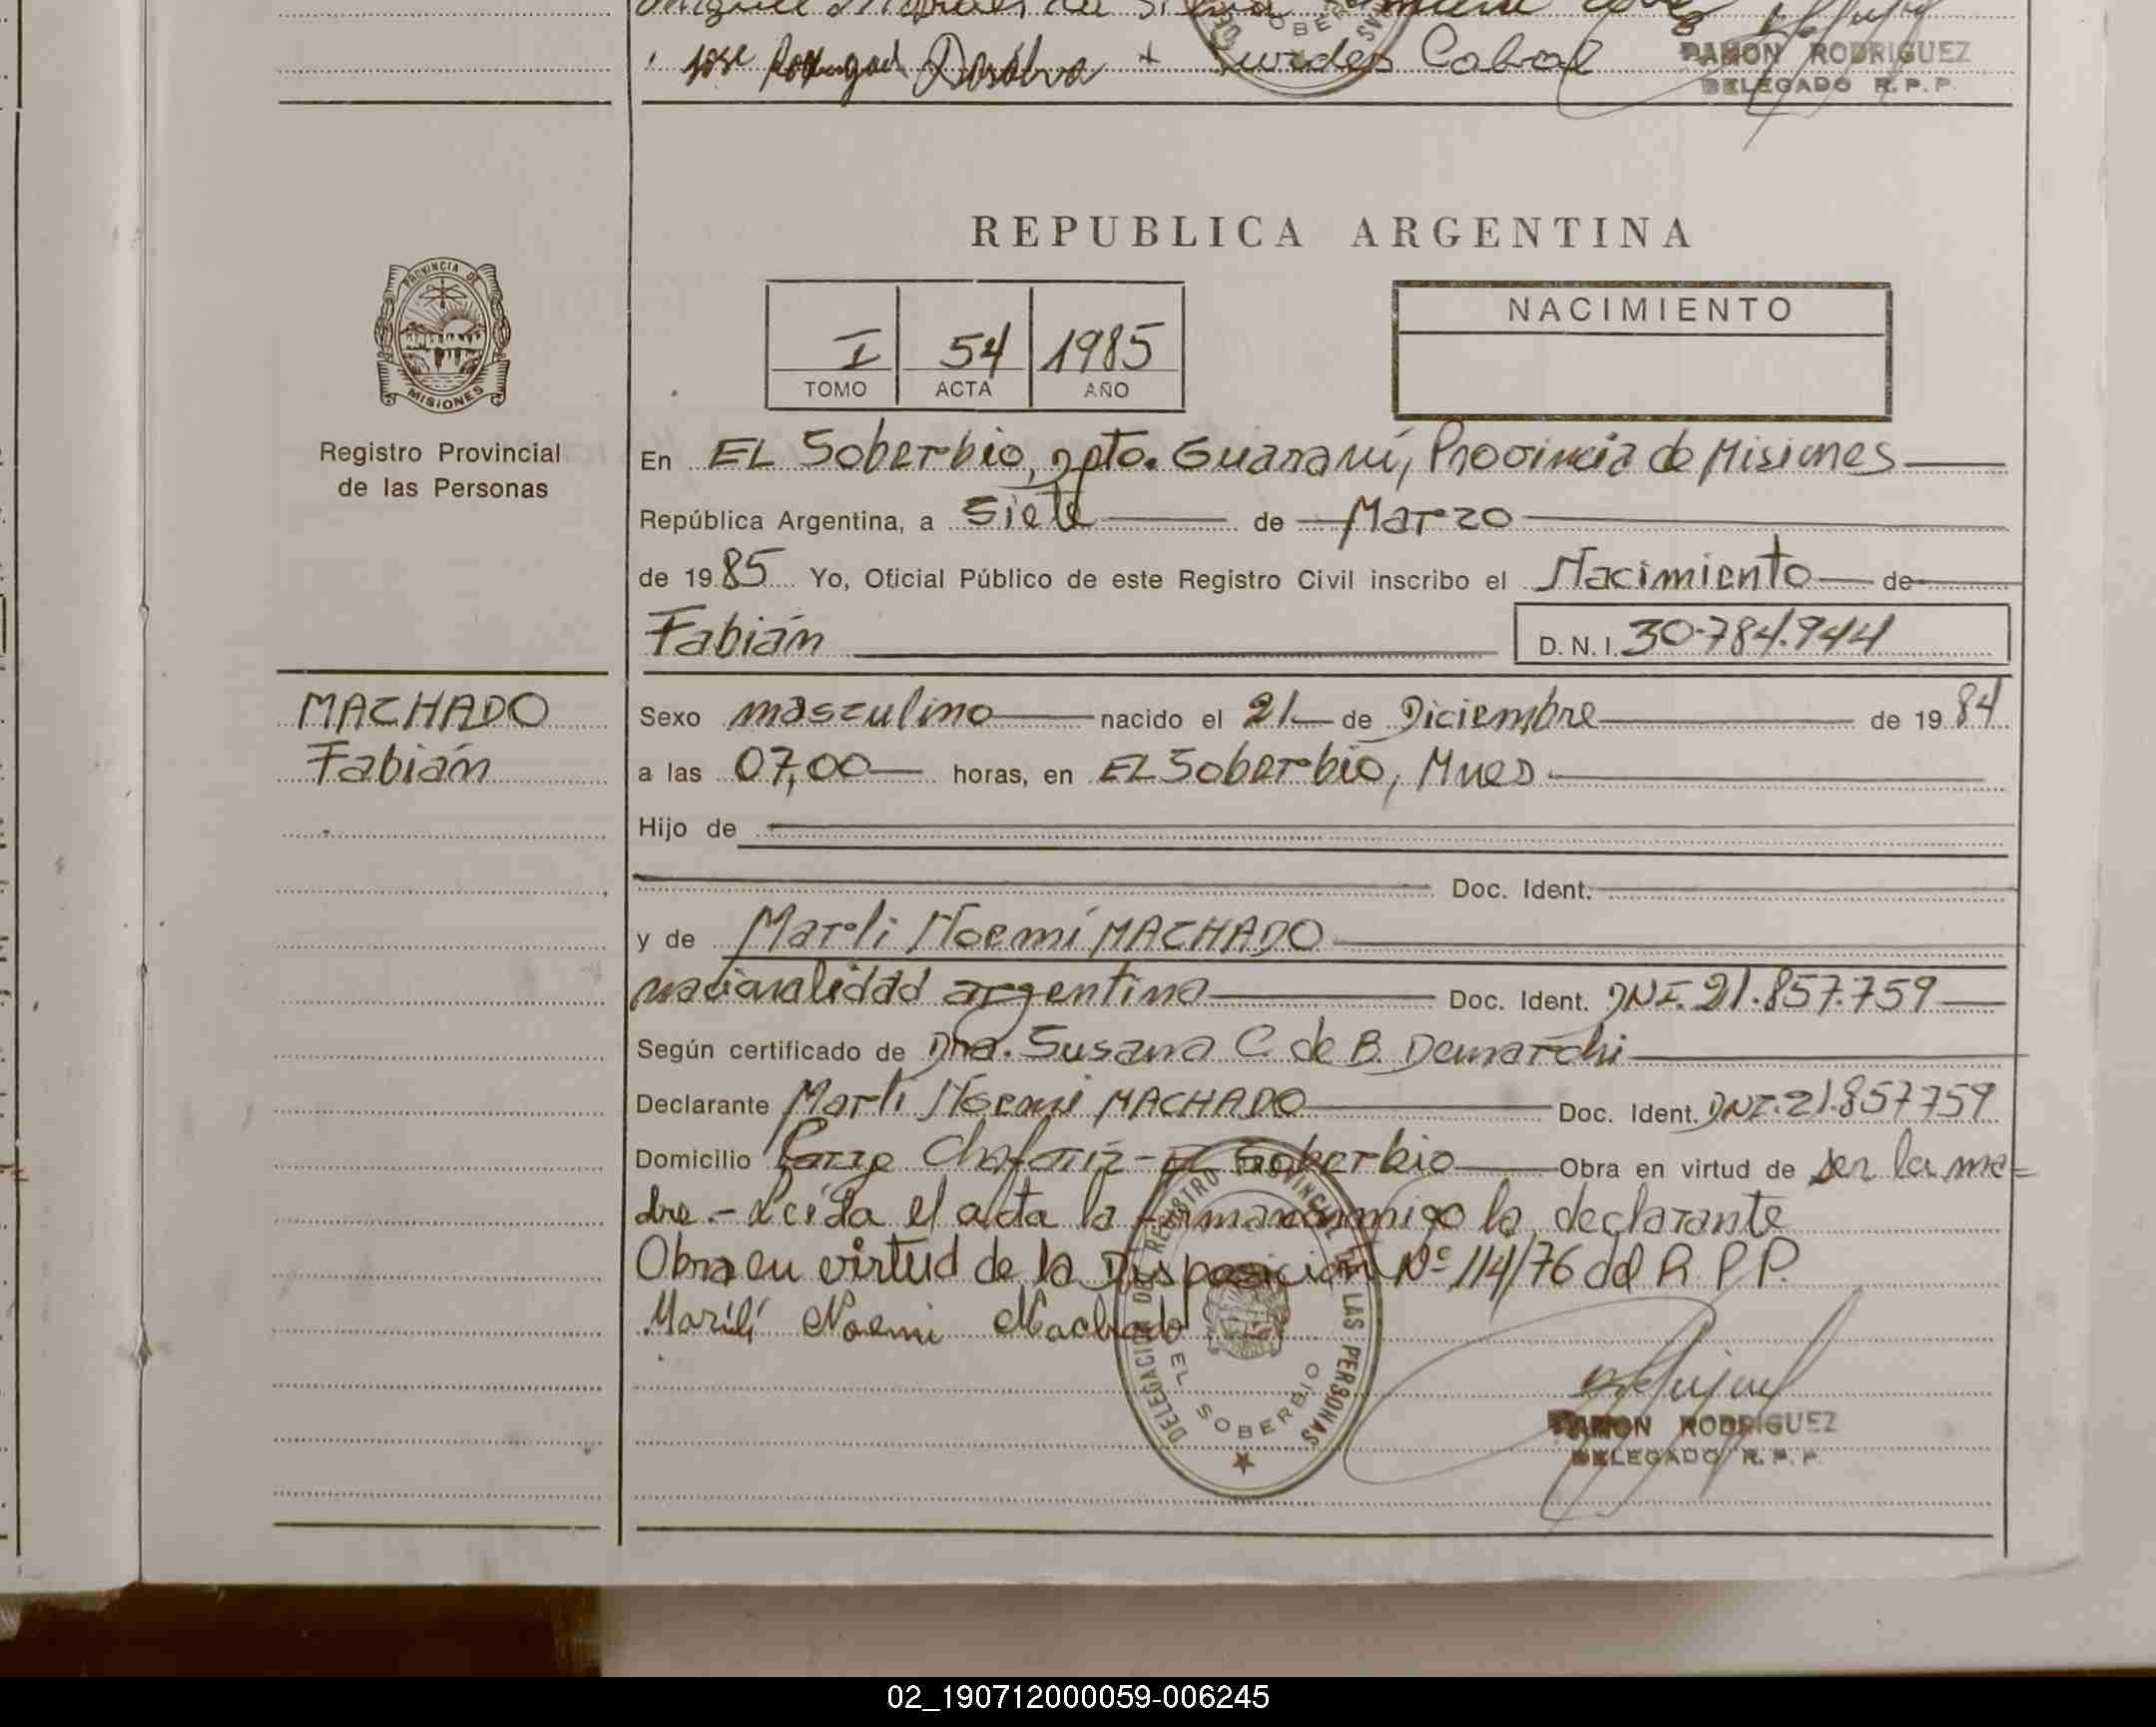 Lurdes Cabral
RAMON RODRIGUEZ
DELEGADO R.P.P.
REPUBLICA ARGENTINA
PROVINCIA DE
MISIONES
Registro Provincial
de las Personas
I 54 1985
TOMO ACTA AÑO
NACIMIENTO
En EL Soberbio, Dpto. Guaraní, Provincia de Misiones
República Argentina, a Siete de Marzo
de 1985 Yo, Oficial Público de este Registro Civil inscribo el Nacimiento de
Fabián D.N.I. 30.784.944
MACHADO
Fabián
Sexo masculino nacido el 21 de Diciembre de 1984
a las 07,00 horas, en EL Soberbio, Mnes
Hijo de
Doc. Ident.
y de Marli Noemí MACHADO
nacionalidad argentina Doc. Ident. DNI. 21.857.759
Según certificado de Dra. Susana C. de B. Demarchi
Declarante Marli Noemi MACHADO Doc. Ident. DNI. 21.857759
Domicilio Paraje Chafariz - EL Soberbio Obra en virtud de ser la ma-
dre.- Leída el acta la firman conmigo la declarante
Obra en virtud de la Disposición Nº 114/76 del R.P.P.
Marili Noemi Machado
DELEGACION DEL REGISTRO PROVINCIAL DE LAS PERSONAS
EL SOBERBIO
RAMON RODRIGUEZ
DELEGADO R.P.P.
02_190712000059-006245